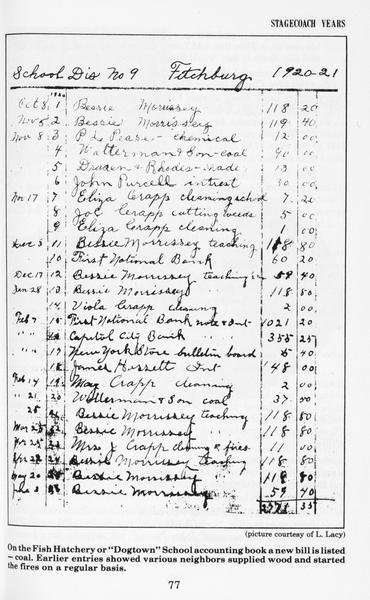 STAGECOACH YEARS
School Dis No 9 Fitchburg 1920-21
1920
Oct 8 1 Bessie Morrissey 118 20
Nov 5 2 Bessie Morrissey 119 40
Nov 8 3 P L Pease - chemical 12 00
4 Watterman & Son - coal 90 00
5 Drazen & Rhodes - shade 13 00
6 John Purcell intrest 30 00
Nov 17 7 Eliza Crapp cleaning school 7 20
8 Joe Crapp cutting weeds 5 00
9 Eliza Crapp cleaning 1 00
Dec 3 11 Bessie Morrissey teaching 118 80
10 First National Bank 60 20
Dec 17 12 Bessie Morrissey teaching 59 40
Jan 28 13 Bessie Morrissey 118 80
14 Viola Crapp cleaning 2 00
Feb 7 15 First National Bank note & Int 1021 20
" " Capitol City Bank 355 25
" " 17 New York Store bulletin board 5 40
18 James Hessett Int 148 00
Feb 14 19 May Crapp cleaning 2 00
" 21 20 Watterman & Son coal 37 50
" 25 Bessie Morrissey teaching 118 80
Mar 25 Bessie Morrissey " 118 80
Apr 25 Mrs J Crapp cleaning & fires 11 00
Apr 22 24 Bessie Morrissey teaching 118 80
May 20 Bessie Morrissey " 118 80
June 3 Bessie Morrissey 59 40
35
(picture courtesy of L. Lacy)
On the Fish Hatchery or "Dogtown" School accounting book a new bill is listed
– coal. Earlier entries showed various neighbors supplied wood and started
the fires on a regular basis.
77